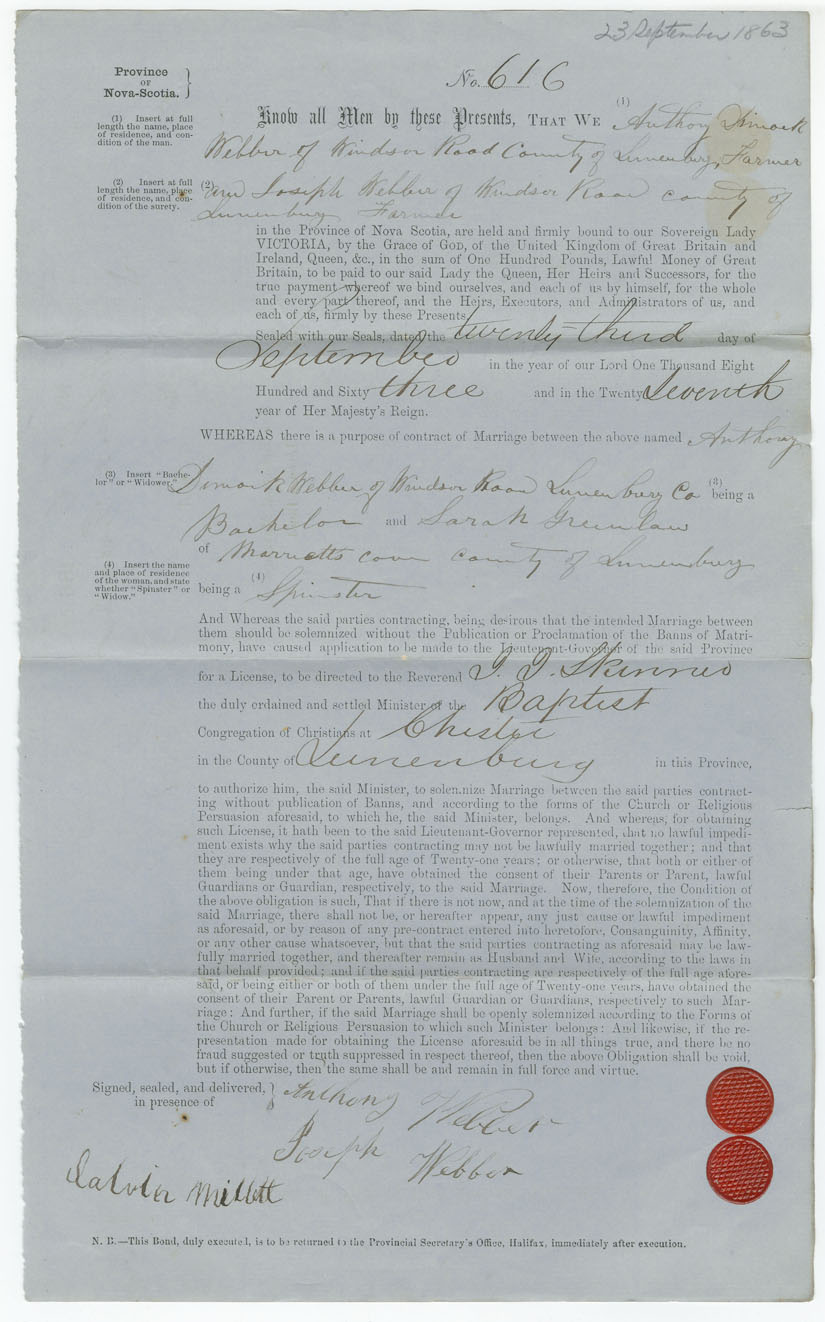 23 September 1863
Province
OF
Nova-Scotia.
No. 616
(1) Insert at full
length the name, place
of residence, and con-
dition of the man.
Know all Men by these Presents, THAT WE (1) Anthony Dimock
Webber of Windsor Road County of Lunenburg, Farmer
(2) Insert at full
length the name, place
of residence, and con-
dition of the surety.
(2) and Joseph Webber of Windsor Road county of
Lunenburg Farmer
in the Province of Nova Scotia, are held and firmly bound to our Sovereign Lady
VICTORIA, by the Grace of GOD, of the United Kingdom of Great Britain and
Ireland, Queen, &c., in the sum of One Hundred Pounds, Lawful Money of Great
Britain, to be paid to our said Lady the Queen, Her Heirs and Successors, for the
true payment whereof we bind ourselves, and each of us by himself, for the whole
and every part thereof, and the Heirs, Executors, and Administrators of us, and
each of us, firmly by these Presents.
Sealed with our Seals, dated the twenty third day of
September in the year of our Lord One Thousand Eight
Hundred and Sixty three and in the Twenty Seventh
year of Her Majesty's Reign.
WHEREAS there is a purpose of contract of Marriage between the above named Anthony
(3) Insert "Bache-
lor" or "Widower."
Dimock Webber of Windsor Road Lunenburg Co (3) being a
Bachelor and Sarah Greenlaw
of Marriotts cove county of Lunenburg
(4) Insert the name
and place of residence
of the woman, and state
whether "Spinster" or
"Widow."
being a (4) Spinster
And Whereas the said parties contracting, being desirous that the intended Marriage between
them should be solemnized without the Publication or Proclamation of the Banns of Matri-
mony, have caused application to be made to the Lieutenant-Governor of the said Province
for a License, to be directed to the Reverend I. J. Skinner
the duly ordained and settled Minister of the Baptist
Congregation of Christians at Chester
in the County of Lunenburg in this Province,
to authorize him, the said Minister, to solemnize Marriage between the said parties contract-
ing without publication of Banns, and according to the forms of the Church or Religious
Persuasion aforesaid, to which he, the said Minister, belongs. And whereas, for obtaining
such License, it hath been to the said Lieutenant-Governor represented, that no lawful impedi-
ment exists why the said parties contracting may not be lawfully married together; and that
they are respectively of the full age of Twenty-one years; or otherwise, that both or either of
them being under that age, have obtained the consent of their Parents or Parent, lawful
Guardians or Guardian, respectively, to the said Marriage. Now, therefore, the Condition of
the above obligation is such, That if there is not now, and at the time of the solemnization of the
said Marriage, there shall not be, or hereafter appear, any just cause or lawful impediment
as aforesaid, or by reason of any pre-contract entered into heretofore, Consanguinity, Affinity,
or any other cause whatsoever, but that the said parties contracting as aforesaid may be law-
fully married together, and thereafter remain as Husband and Wife, according to the laws in
that behalf provided; and if the said parties contracting are respectively of the full age afore-
said, or being either or both of them under the full age of Twenty-one years, have obtained the
consent of their Parent or Parents, lawful Guardian or Guardians, respectively to such Mar-
riage: And further, if the said Marriage shall be openly solemnized according to the Forms of
the Church or Religious Persuasion to which such Minister belongs: And likewise, if the re-
presentation made for obtaining the License aforesaid be in all things true, and there be no
fraud suggested or truth suppressed in respect thereof, then the above Obligation shall be void,
but if otherwise, then the same shall be and remain in full force and virtue.
Signed, sealed, and delivered,
in presence of
Anthony Webber
Joseph Webber
Calvin Millett
N. B.—This Bond, duly executed, is to be returned to the Provincial Secretary's Office, Halifax, immediately after execution.